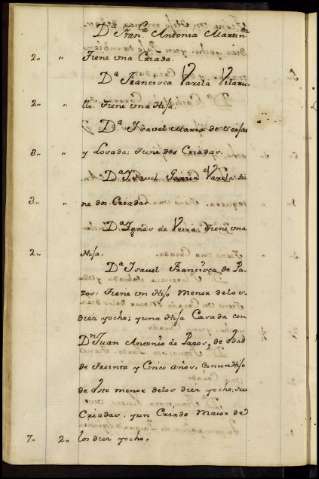 Dª Franᶜª Antonia Martin
2.. " tiene una Criada.
Dª Francisca Varela Vilari
2.. " tiene una Hija.
Dª Isavel Maria de
3.. " y Losada; tiene dos Criadas.
Dª Isavel Varela tie
3.. " ne dos Criadas.
Dª Ignes de Neira; tiene una
2.. " Hija.
Dª Isavel Francisca de Pa
zos; tiene un Hijo menor de los
diez y ocho; y una Hija Casada con
Dⁿ Juan Antonio de Pazos, de hedad
de sesenta y Cinco años, con un Hijo
de este menor de los diez y ocho, dos
Criadas, y un Criado Maior de
7.. 2.. los diez y ocho.